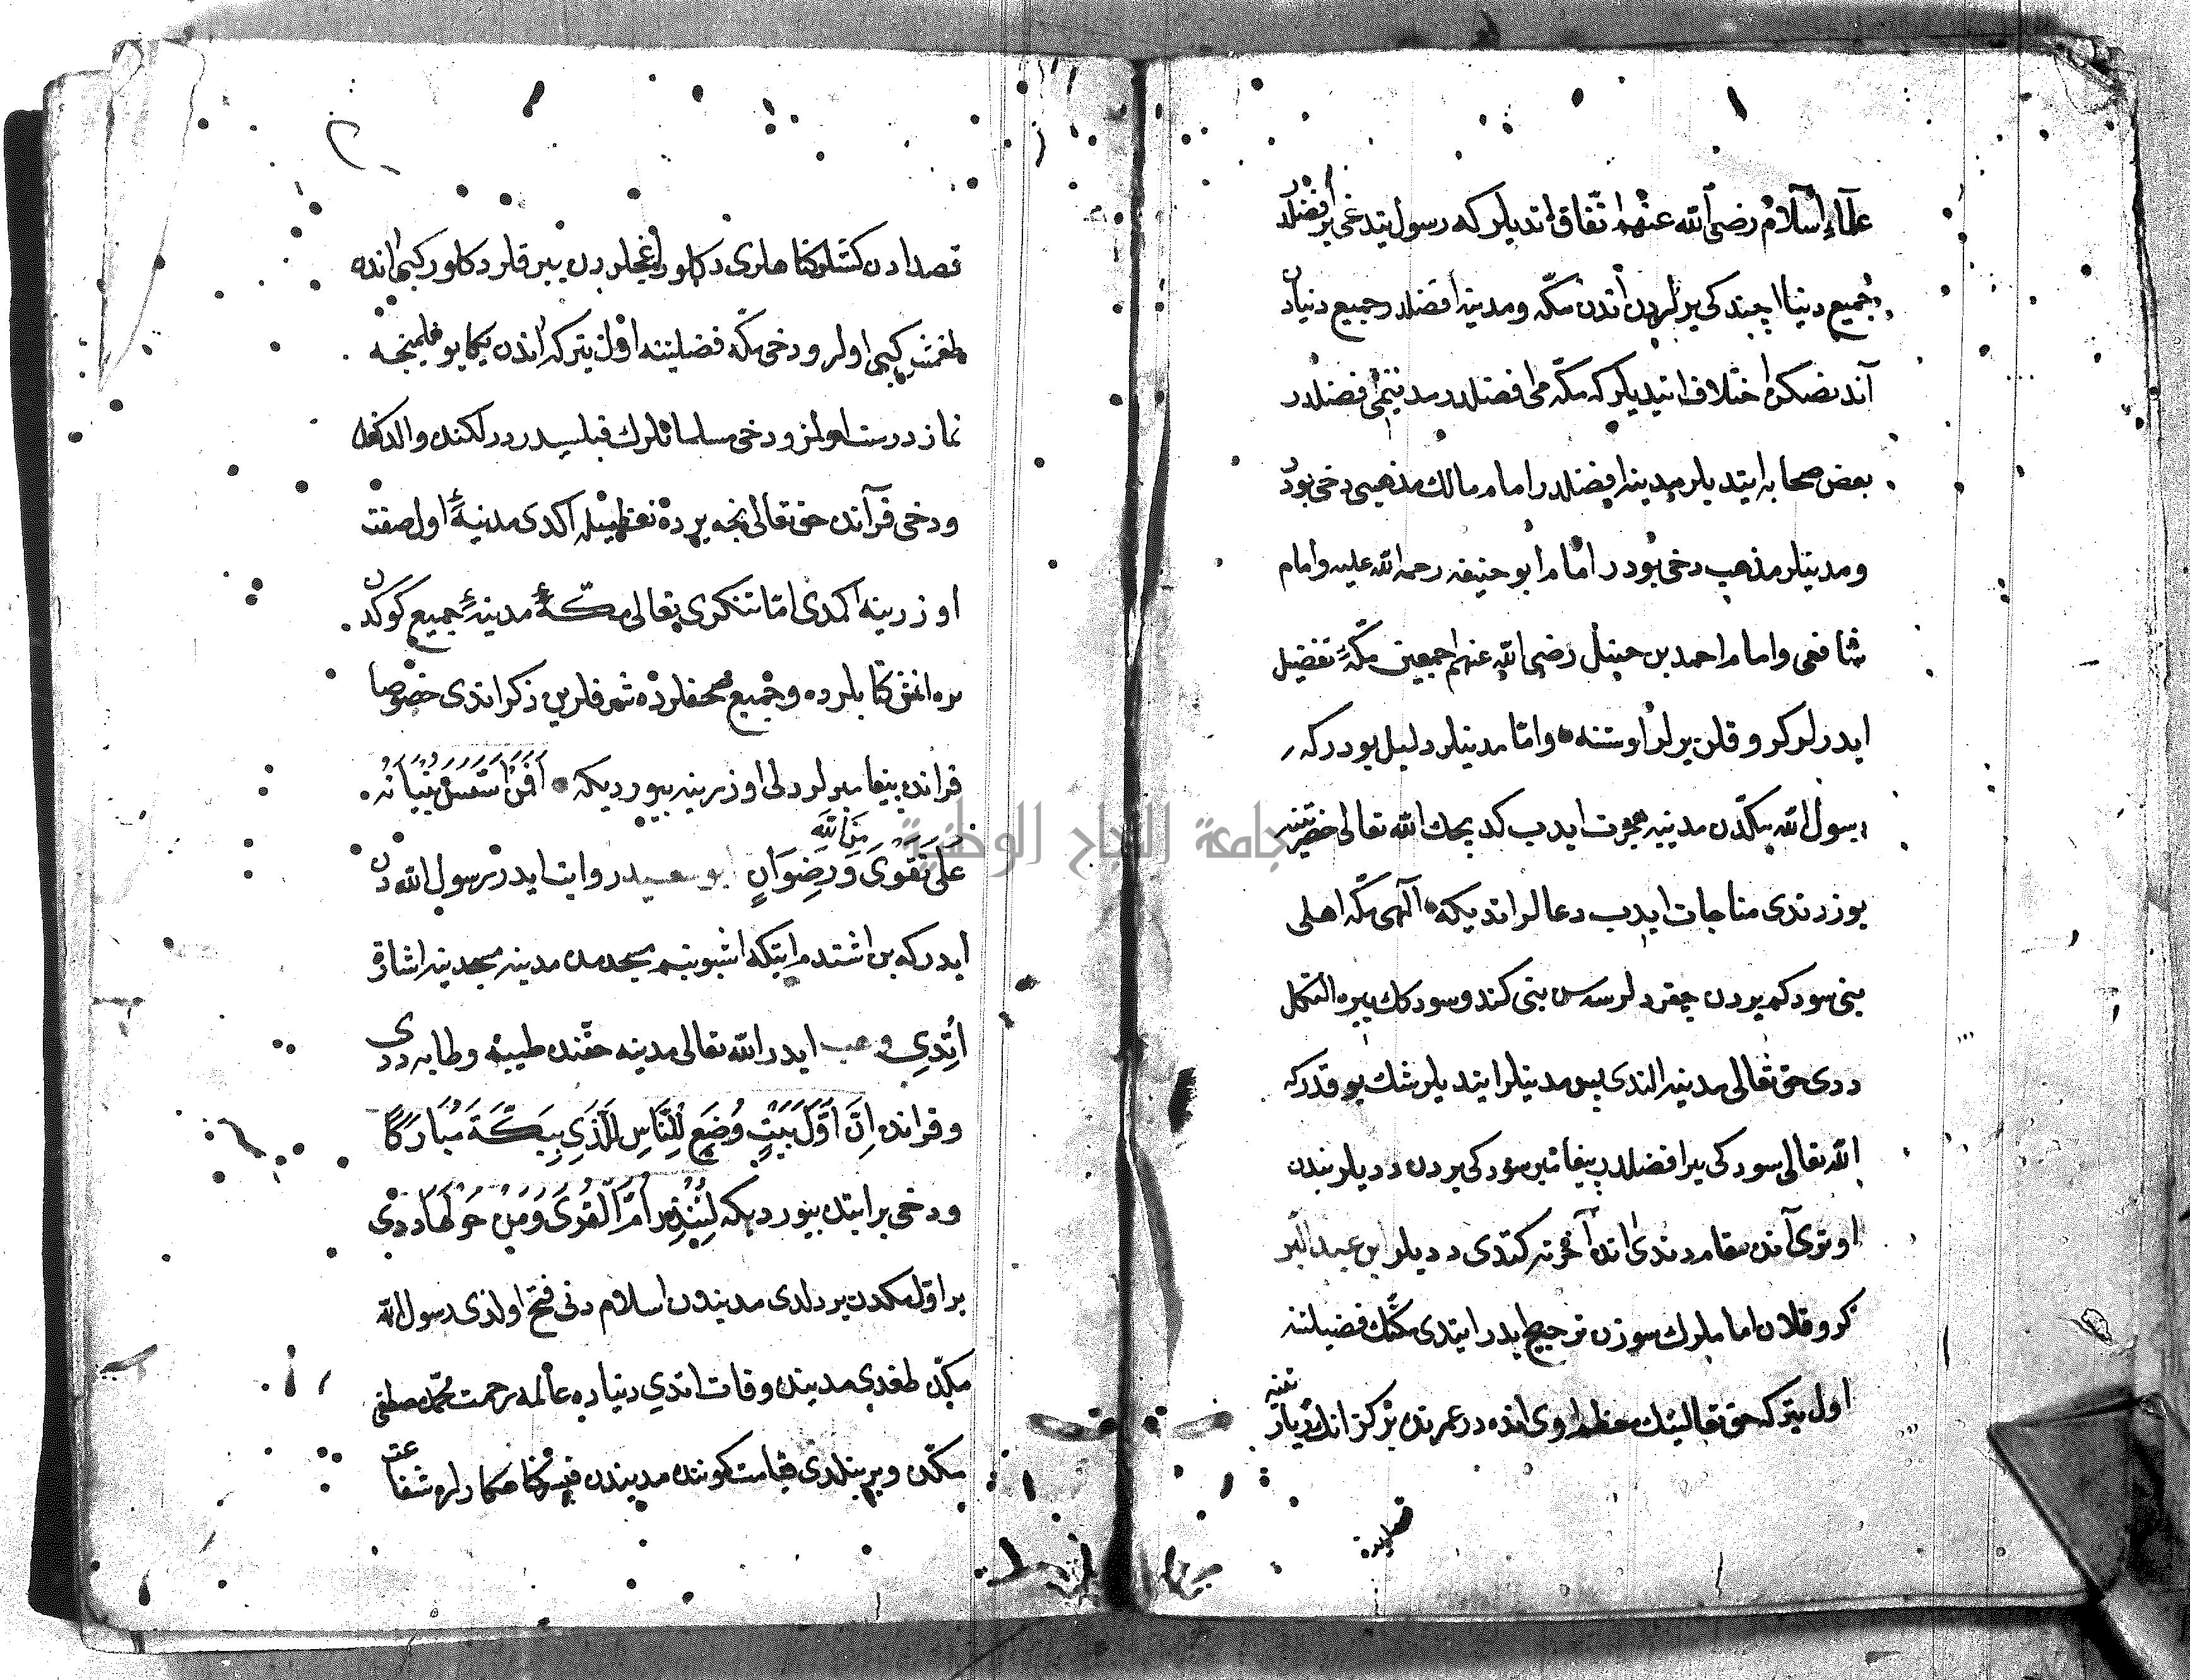 علماء اسلام رضی الله عنهم اتّفاق اتدیلر که رسول یتدغی یر افضلدر
جمیع دنیا ایچندکی یرلردن اندن مکّه ومدینه افضلدر جمیع دنیادن
آندنصکره اختلاف ایتدیلر که مکّه می افضلدر مدینه می افضلدر
بعض صحابه ایتدیلر مدینه افضلدر امام مالک مذهبی دخی بودر
ومدینلر مذهب دخی بودر امّا امام ابو حنیفه رحمه الله علیه وامام
شافعی وامام احمد بن حنبل رضی الله عنهم اجمعین مکّهٔ تفضیل
ایدرلر کرو قلن یرلر اوستنه وامّا مدینلر دلیل بودر که
رسول الله مکّدن مدینیه هجرت ایدب کدیجک الله تعالی حضرتنه
یوز دندی مناجات ایدب دعالر اتدیکه آلهی مکّه اهلی
بنی سودکم یردن چقردلر سن بنی کندو سودکک یره التکل
ددی حق تعالی مدینه الندی پس مدینلر ایتدیلر شک یوقدر که
الله تعالی سودکی یر افضلدر پیغامبر سودکی یردن ددیلر بندن
اوتری آنده مقام دندی انده آخرته کتدی ددیلر ابن عبد البر
کرو قلان اماملرک سوزن ترجیح ایدر ایتدی مکّنک فضیلتنه
اول یتر که حق تعالینک اوی انده در عمرنده بر کز انک زیارتنه
قصد ایدن
قصد ادن کشلر کناهلری دکلور اغجلردن یپرقلر دکلور کبی انده
طغمش کبی اولر ودخی مکّه فضلینه اول یتر که اندن یکا یوقلمینجه
نماز درست اولمز ودخی مسلمانلرک قبلسیدر درلکنده والدکنده
ودخی قرآنده حق تعالی نجه یرده تعظیمله اکدی مدینهٔ اول صفت
اوزرینه اکمدی امّا تنکری تعالی مکّهٔ مدینهٔ جمیع کوکدن
انمش کتابلرده وجمیع صحفلرده شرفلرین ذکر اتدی خصوصا
قرانده پیغامبرلر دلی اوزرینه بیوردیکه اَفَمَنْ اَسَّسَ بُنْیَانَهُ
عَلَی تَقْوَی مِنَ اللَّهِ وَرِضْوَانٍ ابو سعید روایت ایدر رسول الله دن
ایدر که بن اشتدم ایتکه اشبو بنم مسجدمدن مدینه مسجدینه اشارة
اتدی وهب ایدر الله تعالی مدینه حقنده طیبه وطابه ددی
وقرانده اِنَّ اَوَّلَ بَیْتٍ وُضِعَ لِلنَّاسِ لَلَّذِی بِبَکَّةَ مُبَارَکًا
ودخی بر ایتده بیوردیکه لِتُنْذِرَ اُمَّ الْقُرَی وَمَنْ حَوْلَهَا ددی
یر اوّل مکّدن یردلدی مدیندن اسلام دنی فتح اولدی رسول الله
مکّده طغدی مدینده وفات اتدی دنیاده عالمه رحمت محمّد مصطفی
مکّدن ویرلدی قیامت کوننده مدیندن کناهکارلره شفاعت
جامعة النجاح الوطنية